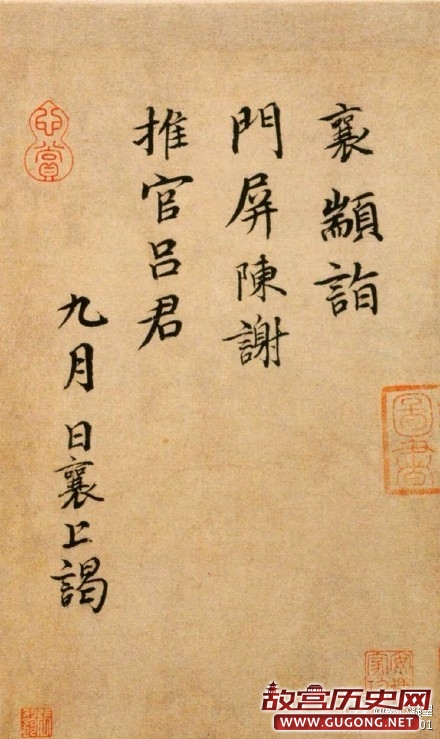 襄顓詣
門屏陳謝
推官呂君
九月 日襄上謁
故宫历史网
WWW.GUGONG.NET
01